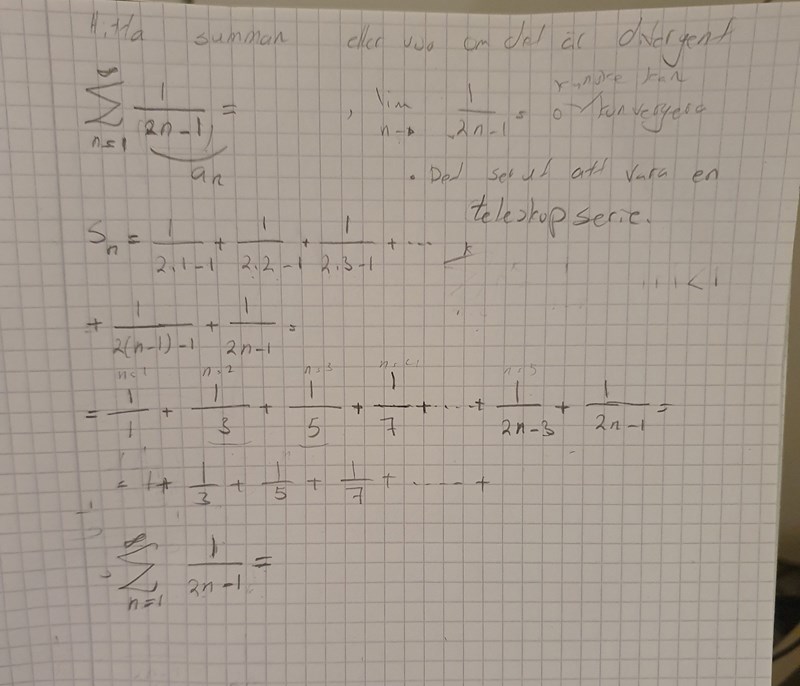 Hitta summan eller visa om det är divergent
∞
∑ 1/(2n-1) = , lim n→∞ 1/2n-1 = 0 kanske kan konvergera
n=1
an
• Det ser ut att vara en
teleskopserie.
Sn = 1/2·1-1 + 1/2·2-1 + 1/2·3-1 + ...
... < 1
+ 1/2(n-1)-1 + 1/2n-1 =
n=1 n=2 n=3 n=4 n=5
= 1/1 + 1/3 + 1/5 + 1/7 + ... + 1/2n-3 + 1/2n-1 =
= 1 + 1/3 + 1/5 + 1/7 + ..... +
∞
∑ 1/2n-1 =
n=1